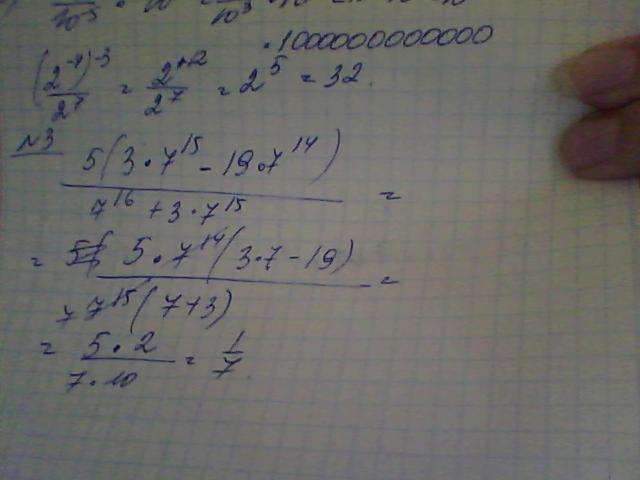 · 1000000000000
(2⁻⁴)⁻³ / 2⁷ = 2⁺¹² / 2⁷ = 2⁵ = 32.
№3
5(3·7¹⁵ - 19·7¹⁴) / 7¹⁶ + 3·7¹⁵ =
= 5·7¹⁴(3·7 - 19) / 7¹⁵(7+3) =
= 5·2 / 7·10 = 1/7